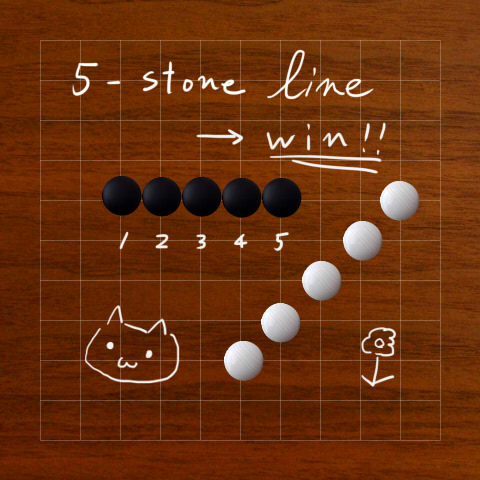 5-stone line
→ win!!
1 2 3 4 5